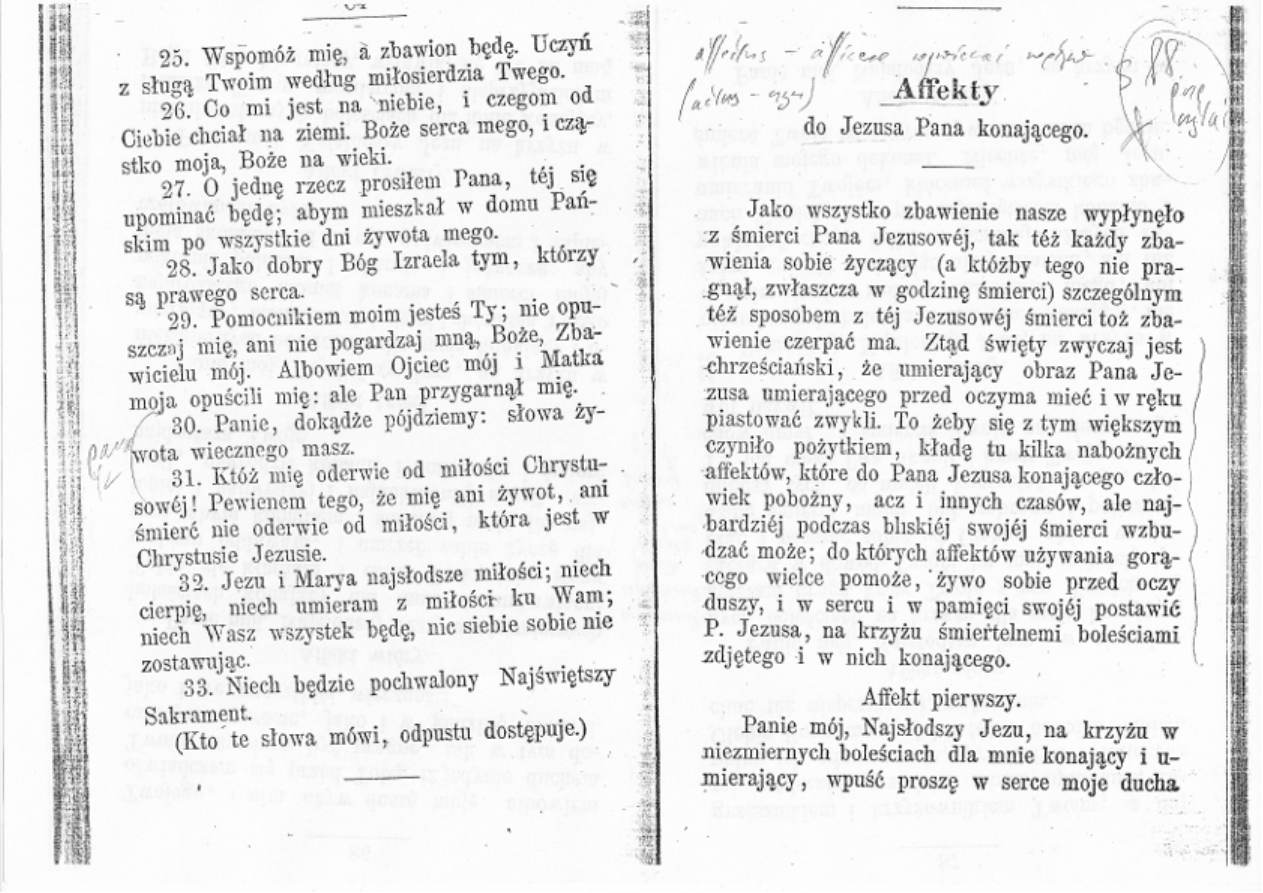 25. Wspomóż mię, a zbawion będę. Uczyń
z sługą Twoim według miłosierdzia Twego.
26. Co mi jest na niebie, i czegom od
Ciebie chciał na ziemi. Boże serca mego, i czą-
stko moja, Boże na wieki.
27. O jednę rzecz prosiłem Pana, téj się
upominać będę; abym mieszkał w domu Pań-
skim po wszystkie dni żywota mego.
28. Jako dobry Bóg Izraela tym, którzy
są prawego serca.
29. Pomocnikiem moim jesteś Ty; nie opu-
szczaj mię, ani nie pogardzaj mną, Boże, Zba-
wicielu mój. Albowiem Ojciec mój i Matka
moja opuścili mię: ale Pan przygarnął mię.
30. Panie, dokądże pójdziemy: słowa ży-
wota wiecznego masz.
31. Któż mię oderwie od miłości Chrystu-
sowéj! Pewienem tego, że mię ani żywot, ani
śmierć nie oderwie od miłości, która jest w
Chrystusie Jezusie.
32. Jezu i Marya najsłodsze miłości; niech
cierpię, niech umieram z miłości ku Wam;
niech Wasz wszystek będę, nic siebie sobie nie
zostawując.
33. Niech będzie pochwalony Najświętszy
Sakrament.
(Kto te słowa mówi, odpustu dostępuje.)
affectus – afficere
(actus – agere)
88.
Affekty
do Jezusa Pana konającego.
Jako wszystko zbawienie nasze wypłynęło
z śmierci Pana Jezusowéj, tak téż każdy zba-
wienia sobie życzący (a któżby tego nie pra-
gnął, zwłaszcza w godzinę śmierci) szczególnym
téż sposobem z téj Jezusowéj śmierci toż zba-
wienie czerpać ma. Ztąd święty zwyczaj jest
chrześciański, że umierający obraz Pana Je-
zusa umierającego przed oczyma mieć i w ręku
piastować zwykli. To żeby się z tym większym
czyniło pożytkiem, kładę tu kilka nabożnych
affektów, które do Pana Jezusa konającego czło-
wiek pobożny, acz i innych czasów, ale naj-
bardziéj podczas bliskiéj swojéj śmierci wzbu-
dzać może; do których affektów używania gorą-
cego wielce pomoże, żywo sobie przed oczy
duszy, i w sercu i w pamięci swojéj postawić
P. Jezusa, na krzyżu śmiertelnemi boleściami
zdjętego i w nich konającego.
Affekt pierwszy.
Panie mój, Najsłodszy Jezu, na krzyżu w
niezmiernych boleściach dla mnie konający i u-
mierający, wpuść proszę w serce moje ducha